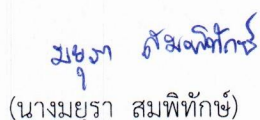 มยุรา สมพิทักษ์
(นางมยุรา สมพิทักษ์)